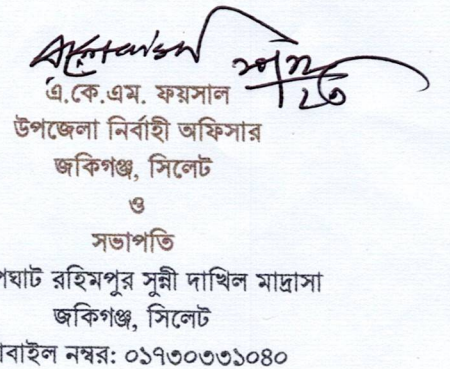 এ.কে.এম. ফয়সাল
উপজেলা নির্বাহী অফিসার
জকিগঞ্জ, সিলেট
ও
সভাপতি
রহিমপুর সুন্নী দাখিল মাদ্রাসা
জকিগঞ্জ, সিলেট
নম্বর: ০১৭৩০৩৩১০৪০